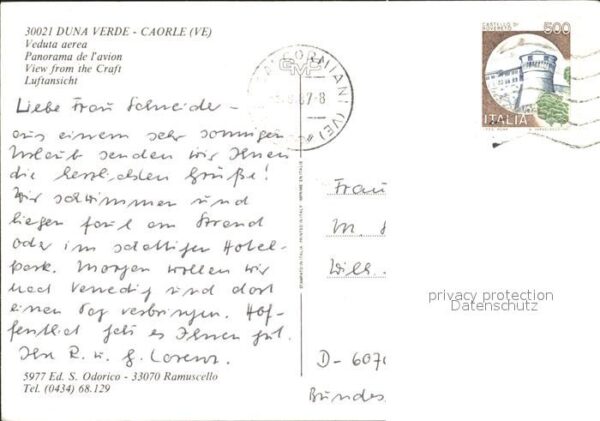 30021 DUNA VERDE - CAORLE (VE)
Veduta aerea
Panorama de l'avion
View from the Craft
Luftansicht
Liebe Frau Schneider -
aus einem sehr sonnigen
Urlaub senden wir Ihnen
die herzlichsten Grüße!
Wir schwimmen und
liegen faul am Strand
oder im schattigen Hotel-
park. Morgen wollen wir
nach Venedig und dort
einen Tag verbringen. Hof-
fentlich geht es Ihnen gut.
Ihre R. u. G. Lorenz.
5977 Ed. S. Odorico - 33070 Ramuscello
Tel. (0434) 68.129
CASTELLO DI
ROVERETO
500
ITALIA
87-8
(VE)
Frau
M.
Wilh.
D-6070
Bundes
privacy protection
Datenschutz